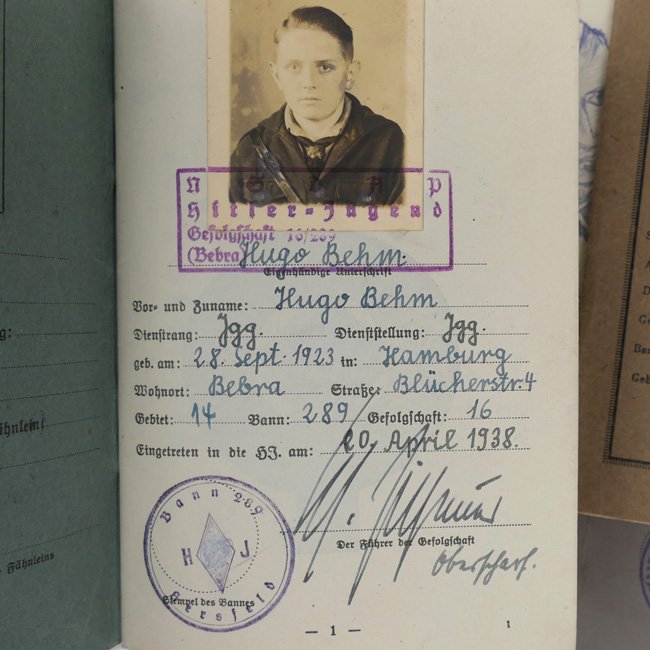 N S D A P
Hitler-Jugend
Gefolgschaft 16/289
(Bebra)
Hugo Behm.
Eigenhändige Unterschrift
Vor- und Zuname: Hugo Behm
Dienstrang: Jgg Dienststellung: Jgg.
geb. am: 28. Sept. 1923 in: Hamburg
Wohnort: Bebra Straße: Blücherstr. 4
Gebiet: 14 Bann: 289 Gefolgschaft: 16
Eingetreten in die HJ. am: 20. April 1938.
Der Führer der Gefolgschaft
Oberscharf.
Bann 289
H J
Hersfeld
Stempel des Bannes
— 1 —
1
g:
ähnlein
s Fähnleins